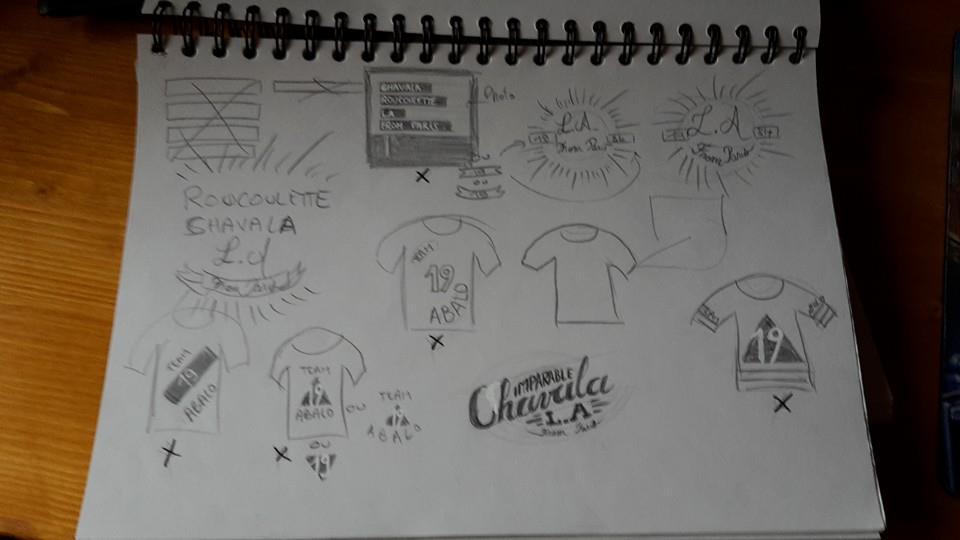 CHAVALA
ROUCOULETTE
LA
FROM PARIS
Photo
OU
OU
L.A
From Paris
L.A
From Paris
ROUCOULETTE
CHAVALA
L.A
From Paris
TEAM
19
ABALO
TEAM
19
ABALO
TEAM
19
ABALO
OU
TEAM
19
ABALO
OU
19
IMPARABLE
Chavala
L.A
From Paris
19